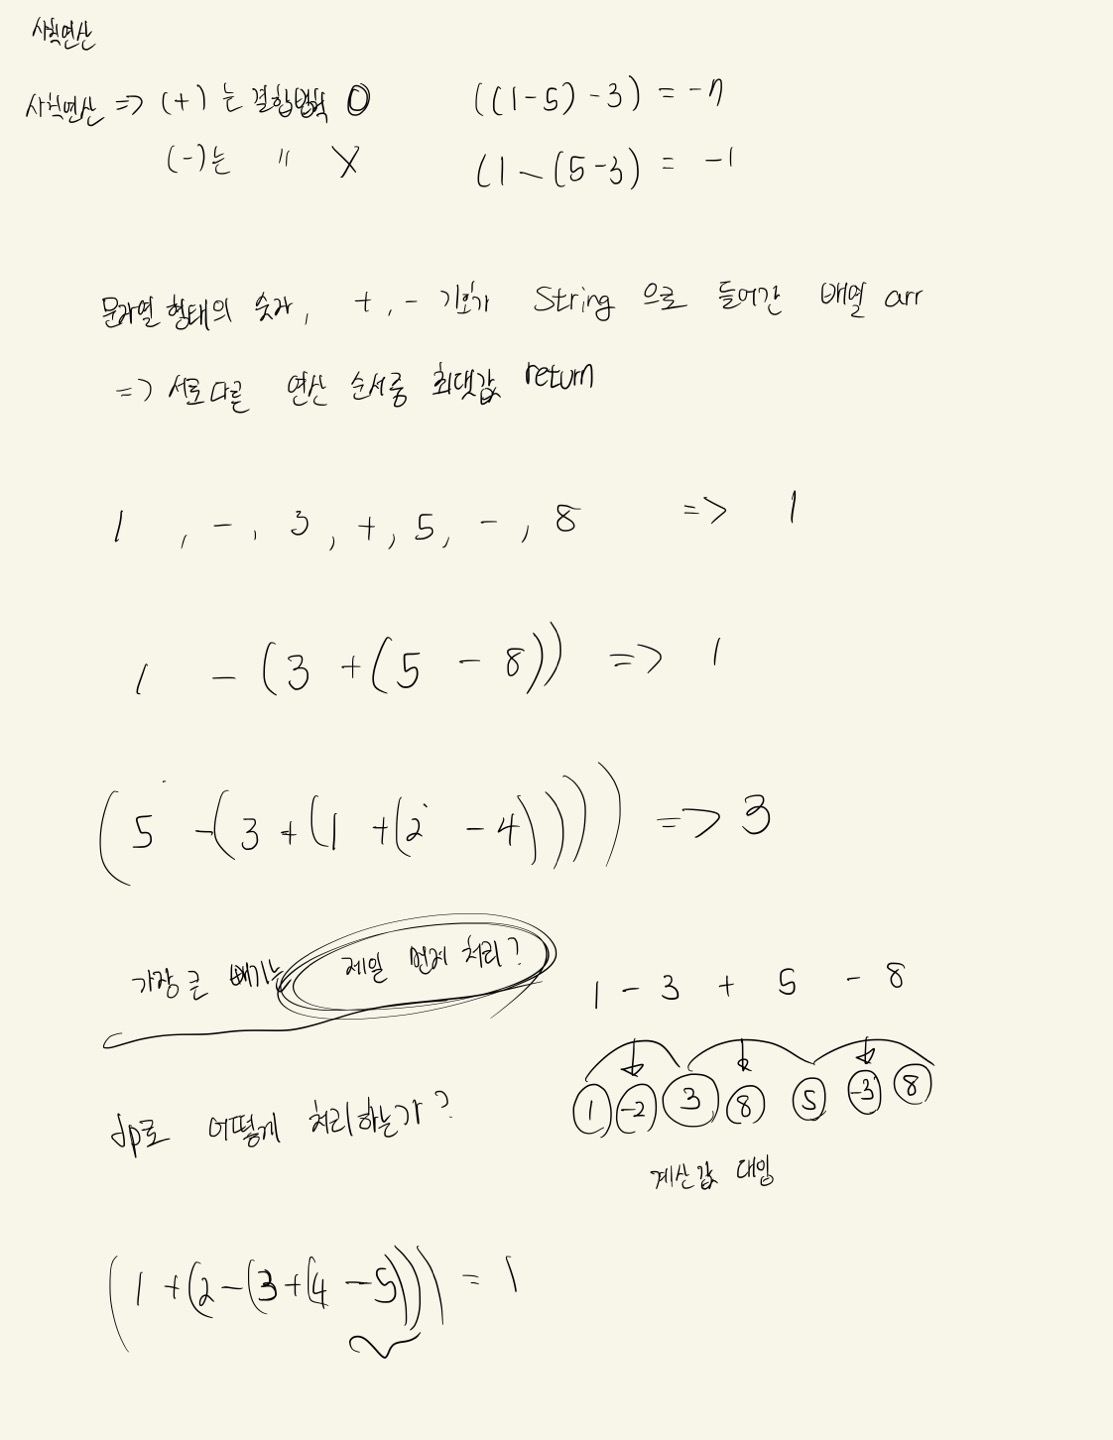 사칙연산
사칙연산 => (+)는 결합법칙 O
((1-5)-3) = -7
(-)는 〃 X
(1-(5-3) = -1
문자열 형태의 숫자, +, - 기호가 String 으로 들어간 배열 arr
=> 서로다른 연산 순서중 최댓값 return
1 , - , 3 , + , 5 , - , 8 => 1
1 - (3 + (5 - 8)) => 1
(5 - (3 + (1 + (2 - 4)))) => 3
가장 큰 빼기는 제일 먼저 처리?
1 - 3 + 5 - 8
1 -2 3 8 5 -3 8
계산값 대입
dp로 어떻게 처리하는가?
(1 + (2 - (3 + (4 - 5)))) = 1